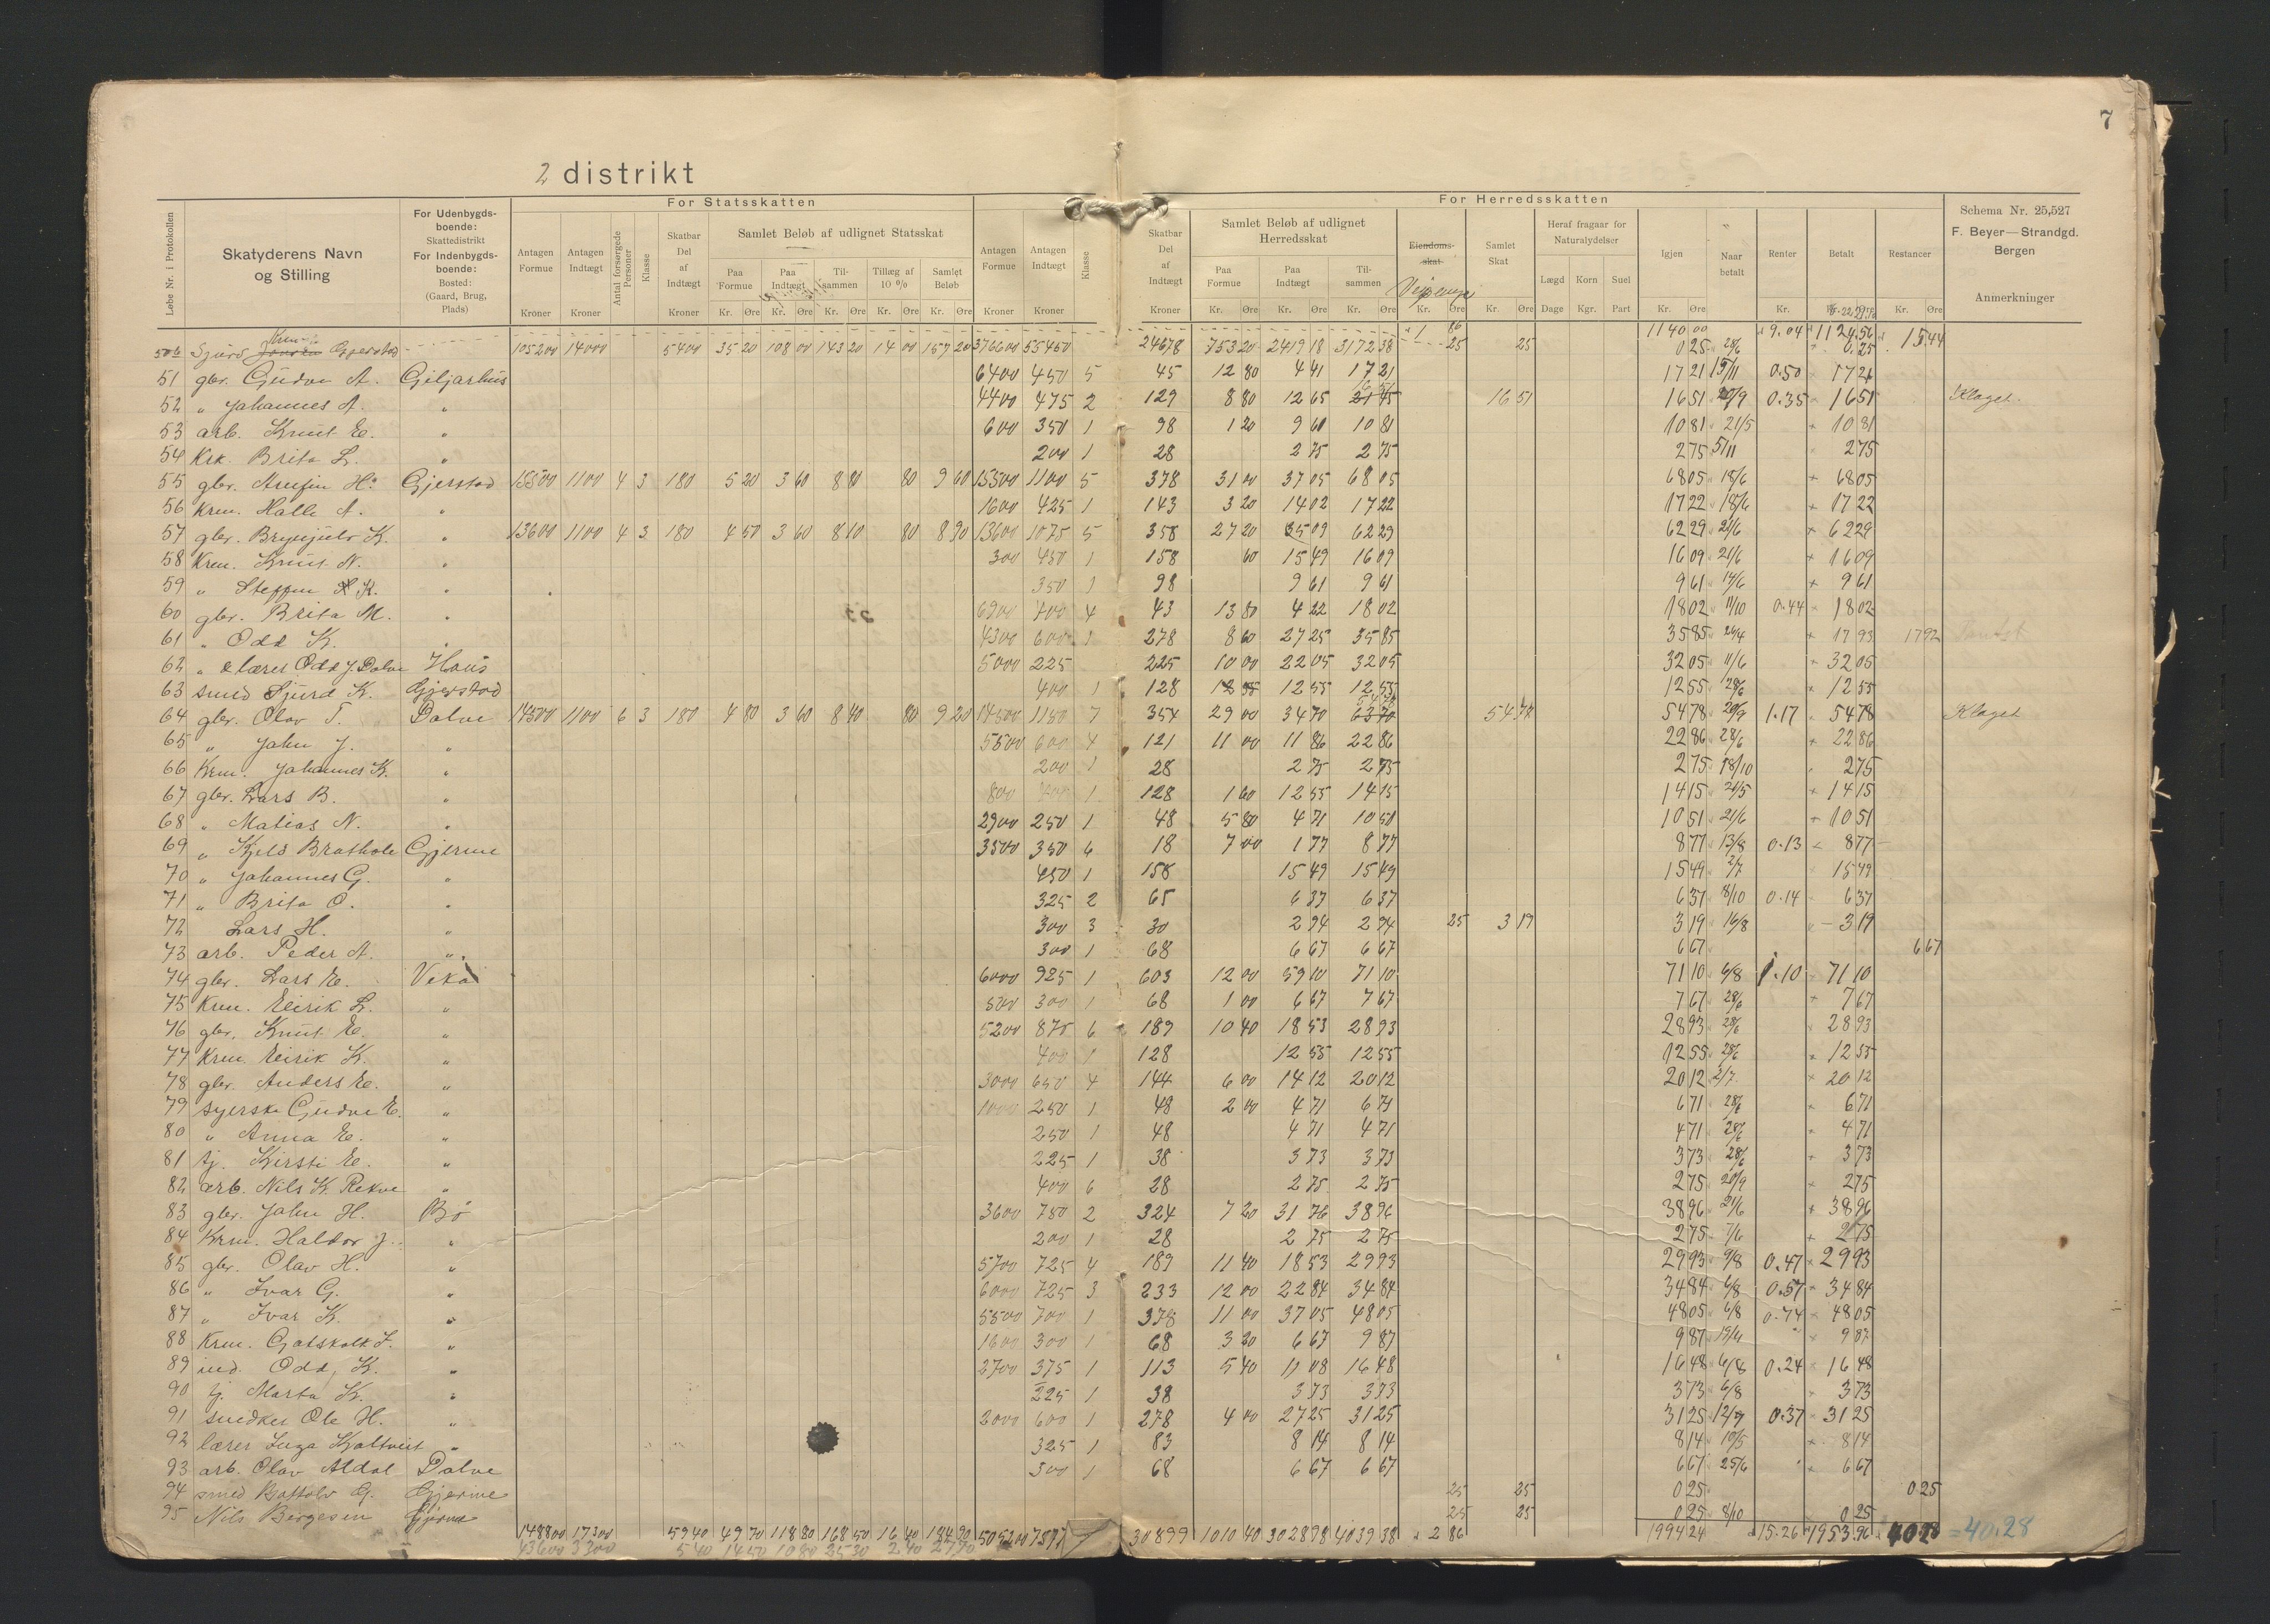 7
2 distrikt
For Statsskatten
For Herredsskatten
Løbe Nr. i Protokollen
Skatyderens Navn og Stilling
For Udenbygdsboende: Skattedistrikt For Indenbygdsboende: Bosted: (Gaard, Brug, Plads)
Antagen Formue Kroner
Antagen Indtægt Kroner
Antal forsørgede Personer
Klasse
Skatbar Del af Indtægt Kroner
Samlet Beløb af udlignet Statsskat
Paa Formue Kr. Øre
Paa Indtægt Kr. Øre
Tilsammen Kr. Øre
Tillæg af 10 % Kr. Øre
Samlet Beløb Kr. Øre
Antagen Formue Kroner
Antagen Indtægt Kroner
Klasse
Skatbar Del af Indtægt Kroner
Samlet Beløb af udlignet Herredsskat
Paa Formue Kr. Øre
Paa Indtægt Kr. Øre
Tilsammen Kr. Øre
Eiendomsskat Kr. Øre
Samlet Skat Kr. Øre
Heraf fragaar for Naturalydelser
Lægd Dage
Korn Kgr.
Suel Part
Igjen Kr. Øre
Naar betalt
Renter Kr.
Betalt
Restancer Kr. Øre
Schema Nr. 25,527
F. Beyer—Strandgd.
Bergen
Anmerkninger
105200 14000 5400 35 20 108 00 143 20 14 00 157 20 376600 55450 24678 753 20 2419 18 3172 38 1 86 1140 00 9.04 1124.56 15.44
50b Sjurd Gjerstad 25 25 0 25 28/6 0.25
51 gbr. Gudve A. Giljarhus 6400 450 5 45 12 80 4 41 17 21 17 21 15/11 0.50 17 21
52 " Johannes A. " 4400 475 2 129 8 80 12 65 21 45 16 51 16 51 16 51 20/9 0.35 16 51 Klaget.
53 arb. Knut E. " 600 350 1 98 1 20 9 61 10 81 10 81 21/5 10 81
54 Krk. Brita L. " 200 1 28 2 75 2 75 2 75 5/11 2 75
55 gbr. Arnfin H. Gjerstad 15500 1100 4 3 180 5 20 3 60 8 80 80 9 60 15500 1100 5 378 31 00 37 05 68 05 68 05 18/6 68 05
56 Krm. Halle A. " 1600 425 1 143 3 20 14 02 17 22 17 22 18/6 17 22
57 gbr. Brynjulv K. " 13600 1100 4 3 180 4 50 3 60 8 10 80 8 90 13600 1075 5 358 27 20 35 09 62 29 62 29 21/6 62 29
58 Krm. Knut N. " 300 450 1 158 60 15 49 16 09 16 09 21/6 16 09
59 " Steffen K. " 350 1 98 9 61 9 61 9 61 14/6 9 61
60 gbr. Brita M. " 6900 400 4 43 13 80 4 22 18 02 18 02 11/10 0.44 18 02
61 " Odd K. " 4300 600 1 278 8 60 27 25 35 85 35 85 17 93 17 92
62 " lærer Odd J. Dalve Haus 5000 225 225 10 00 22 05 32 05 32 05 11/6 32 05
63 smed Sjurd K. Gjerstad 400 1 128 12 55 12 55 12 55 28/6 12 55
64 gbr. Olav T. Dalve 14500 1100 6 3 180 4 80 3 60 8 40 80 9 20 14500 1150 7 354 29 00 34 70 63 70 54.78 54 78 20/9 1.17 54 78 Klaget
65 " John J. " 5500 600 4 121 11 00 11 86 22 86 22 86 28/6 22 86
66 Krm. Johannes K. " 200 1 28 2 75 2 75 2 75 18/10 2 75
67 gbr. Lars B. " 800 400 1 128 1 60 12 55 14 15 14 15 21/5 14 15
68 " Matias N. " 2900 250 1 48 5 80 4 71 10 51 10 51 21/6 10 51
69 " Kjels Brathole Gjerme 3500 350 6 18 7 00 1 77 8 77 8 77 13/8 0.13 8 77
70 " Johannes G. " 450 1 158 15 49 15 49 15 49 2/7 15 49
71 " Brita O. " 325 2 65 6 37 6 37 6 37 8/10 0.14 6 37
72 Lars H. " 300 3 30 2 94 2 94 25 3 19 3 19 16/8 3 19
73 arb. Peder A. " 300 1 68 6 67 6 67 6 67 6 67
74 gbr. Lars E. Veka 6000 925 1 603 12 00 59 10 71 10 71 10 6/8 1.10 71 10
75 Krm. Eirik L. " 500 300 1 68 1 00 6 67 7 67 7 67 28/6 7 67
76 gbr. Knut E. " 5200 875 6 189 10 40 18 53 28 93 28 93 28/6 28 93
77 Krm. Eirik K. " 400 1 128 12 55 12 55 12 55 28/6 12 55
78 gbr. Anders E. " 3000 650 4 144 6 00 14 12 20 12 20 12 2/7 20 12
79 syerske Gudve E. " 1000 250 1 48 2 00 4 71 6 71 6 71 28/6 6 71
80 " Anna E. " 250 1 48 4 71 4 71 4 71 28/6 4 71
81 tj. Kirsti E. " 225 1 38 3 73 3 73 3 73 28/6 3 73
82 arb. Nils K. Rekve " 400 6 28 2 75 2 75 2 75 20/9 2 75
83 gbr. John H. Bø 3600 750 2 324 7 20 31 76 38 96 38 96 21/6 38 96
84 Krm. Haldor J. " 200 1 28 2 75 2 75 2 75 7/6 2 75
85 gbr. Olav H. " 5700 725 4 189 11 40 18 53 29 93 29 93 9/8 0.47 29 93
86 " Ivar G. " 6000 725 3 233 12 00 22 84 34 84 34 84 6/8 0.57 34 84
87 " Ivar K. " 5500 700 1 378 11 00 37 05 48 05 48 05 6/8 0.74 48 05
88 Krm. Gotskalk I. " 1600 300 1 68 3 20 6 67 9 87 9 87 9 87
89 ind. Odd K. " 2700 375 1 113 5 40 11 08 16 48 16 48 6/8 0.24 16 48
90 tj. Marta K. " 225 1 38 3 73 3 73 3 73 6/8 3 73
91 snedker Ole H. " 2000 600 1 278 4 00 27 25 31 25 31 25 12/9 0.37 31 25
92 lærer Inga Kjaltveit " 325 1 83 8 14 8 14 8 14 10/5 8 14
93 arb. Olav Aldal Dalve 300 1 68 6 67 6 67 6 67 25/6 6 67
94 smed Bottolv G. Gjerme 25 25 0 25 0 25
95 Nils Børgesen Gjerme 25 25 0 25 8/10 0 25
148800 17300 5940 49 70 118 80 168 50 16 40 184 90 505200 30899 1010 40 3028 98 4039 38 2 86 1994 24 15.26 1953.96 =40.28
43600 3300 540 14 50 10 80 25 30 2 40 27 70